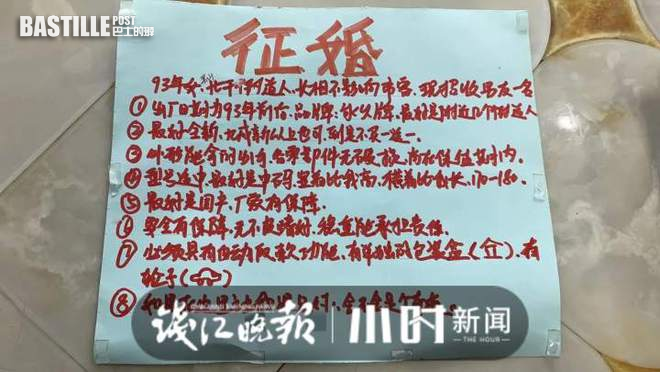 BASTILLE POST
巴士的報
征婚
93年女,北干街道人,长相不影响市容,现招收男友一名
① 出厂日期为93年前后,品牌,最好是附近几个街道人
② 最好全新,九成新以上也可,倒是不买一送一。
③ 外形能拿的出手,各零部件无破损,尚在保值期内
④ 型号适中,最好是中码,竖着比我高,横着比我长,170-180.
⑤ 最好是国产,厂家有保障。
⑥ 安全有保障,无不良嗜好,稳重能承担责任。
⑦ 必须具有自动取款功能,有单独的包装盒(),有
轮子()
⑧
钱江晚报 小时新闻
THE HOUR